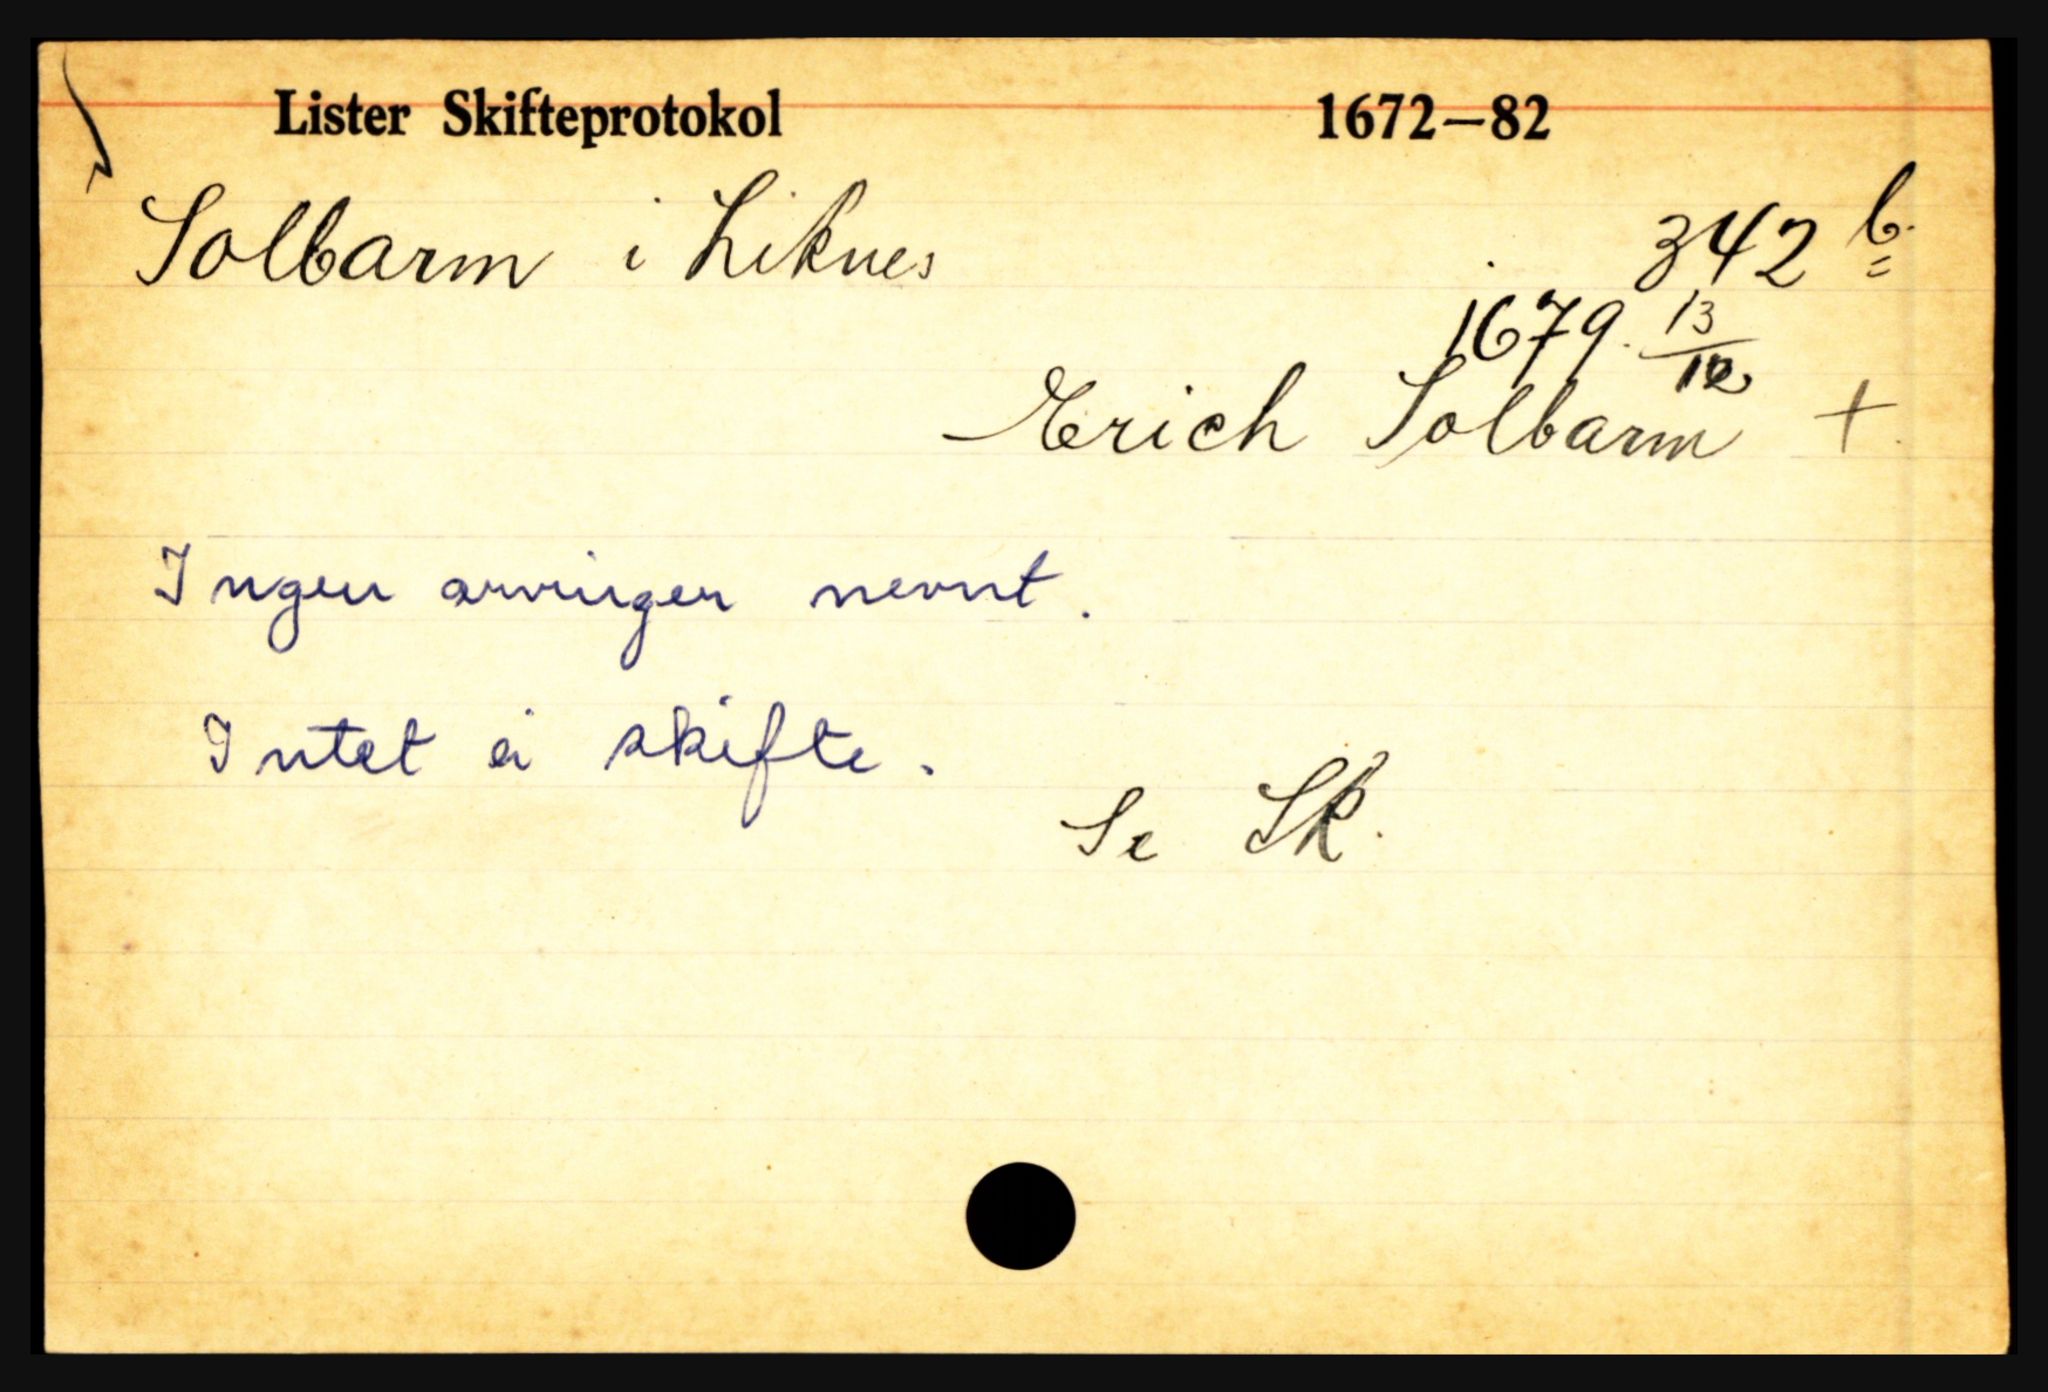 Lister Skifteprotokol 1672–82
Solbarm i Liknes 342 b.
1679. 13/12
Erich Solbarm +
Ingen arvinger nevnt.
Intet ei skifte.
Se Sk.